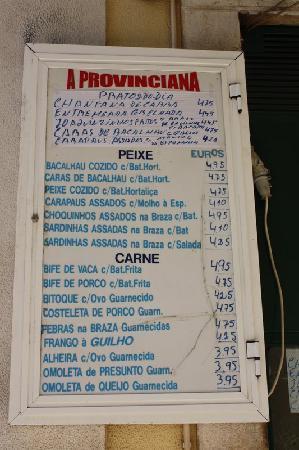 A PROVINCIANA
PRATOS DO DIA
CHANFANA DE CABRA 475
CARAS DE BACALHAU 475
CARAPAUS ASSADOS 420
PEIXE EUROS
BACALHAU COZIDO c/Bat.Hort. 4.95
CARAS DE BACALHAU c/Bat.Hort. 475
PEIXE COZIDO c/Bat.Hortaliça 475
CARAPAUS ASSADOS c/Molho à Esp. 410
CHOQUINHOS ASSADOS na Braza c/Bat. 495
SARDINHAS ASSADAS na Braza c/Bat 410
SARDINHAS ASSADAS na Braza c/Salada 425
CARNE
BIFE DE VACA c/Bat.Frita 4.95
BIFE DE PORCO c/Bat.Frita 475
BITOQUE c/Ovo Guarnecido 425
COSTELETA DE PORCO Guarn. 475
FEBRAS na BRAZA Guarnecidas 475
FRANGO À GUILHO 425
ALHEIRA c/Ovo Guarnecida 3.95
OMOLETA de PRESUNTO Guarn. 3.95
OMOLETA de QUEIJO Guarnecida 3.95